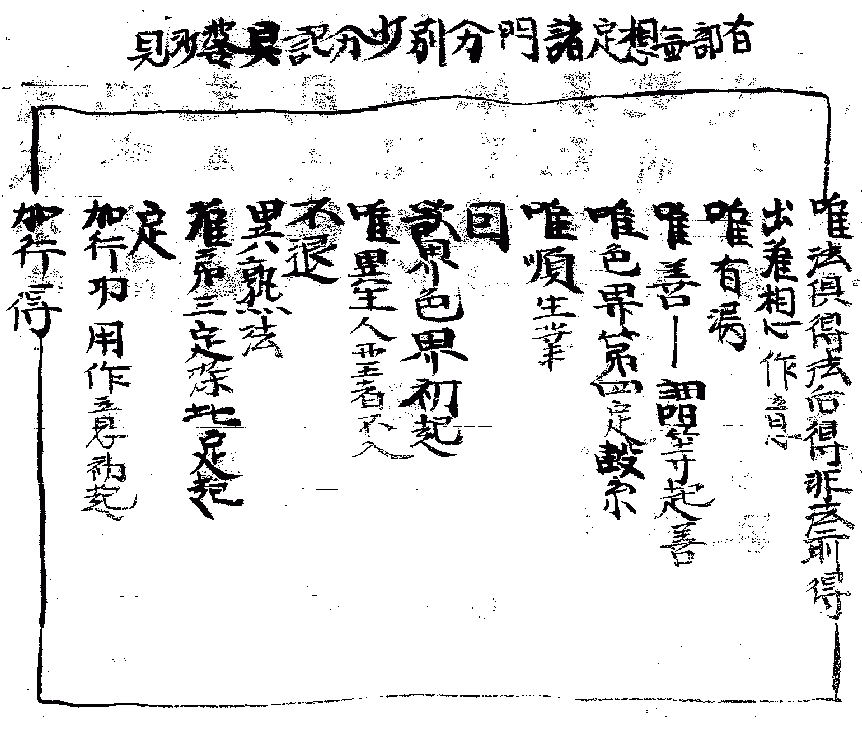 有部無想定諸門分別少分記具婆沙見
唯法俱得法后得非法前得
出離想心作意
唯有漏
唯善 等起善
唯色界第四定
唯順生業
回
欲界色界初起
唯異生人 聖者不入
不退
異熟法
雖第三定除此定起
定
加行功用作意初起
加行得